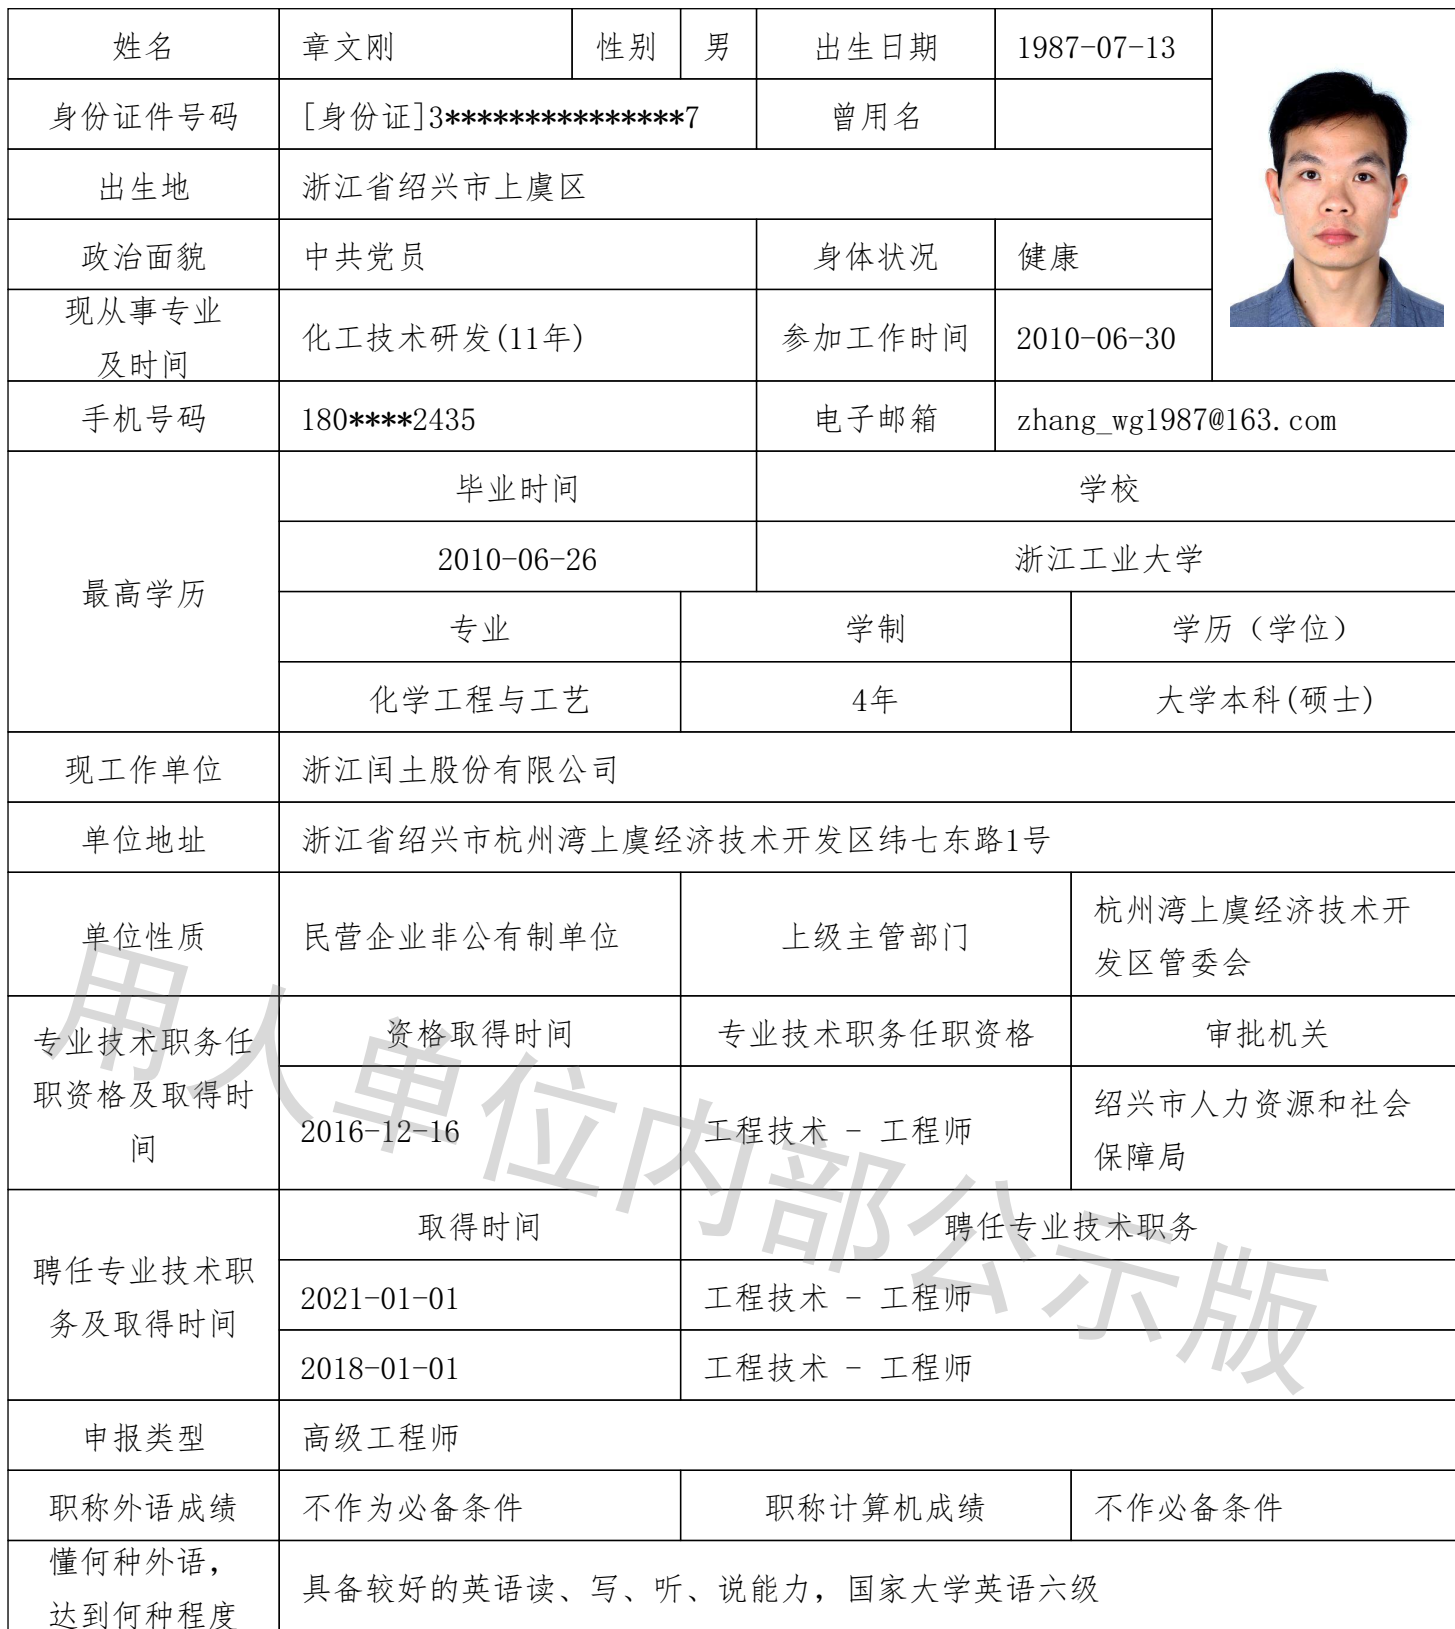 姓名 章文刚 性别 男 出生日期 1987-07-13
身份证件号码 [身份证]3***************7 曾用名
出生地 浙江省绍兴市上虞区
政治面貌 中共党员 身体状况 健康
现从事专业
及时间 化工技术研发(11年) 参加工作时间 2010-06-30
手机号码 180****2435 电子邮箱 zhang_wg1987@163.com
最高学历
毕业时间 学校
2010-06-26 浙江工业大学
专业 学制 学历（学位）
化学工程与工艺 4年 大学本科(硕士)
现工作单位 浙江闰土股份有限公司
单位地址 浙江省绍兴市杭州湾上虞经济技术开发区纬七东路1号
单位性质 民营企业非公有制单位 上级主管部门 杭州湾上虞经济技术开
发区管委会
专业技术职务任
职资格及取得时
间
资格取得时间 专业技术职务任职资格 审批机关
2016-12-16 工程技术 - 工程师 绍兴市人力资源和社会
保障局
聘任专业技术职
务及取得时间
取得时间 聘任专业技术职务
2021-01-01 工程技术 - 工程师
2018-01-01 工程技术 - 工程师
申报类型 高级工程师
职称外语成绩 不作为必备条件 职称计算机成绩 不作必备条件
懂何种外语，
达到何种程度 具备较好的英语读、写、听、说能力，国家大学英语六级
用人单位内部公示版